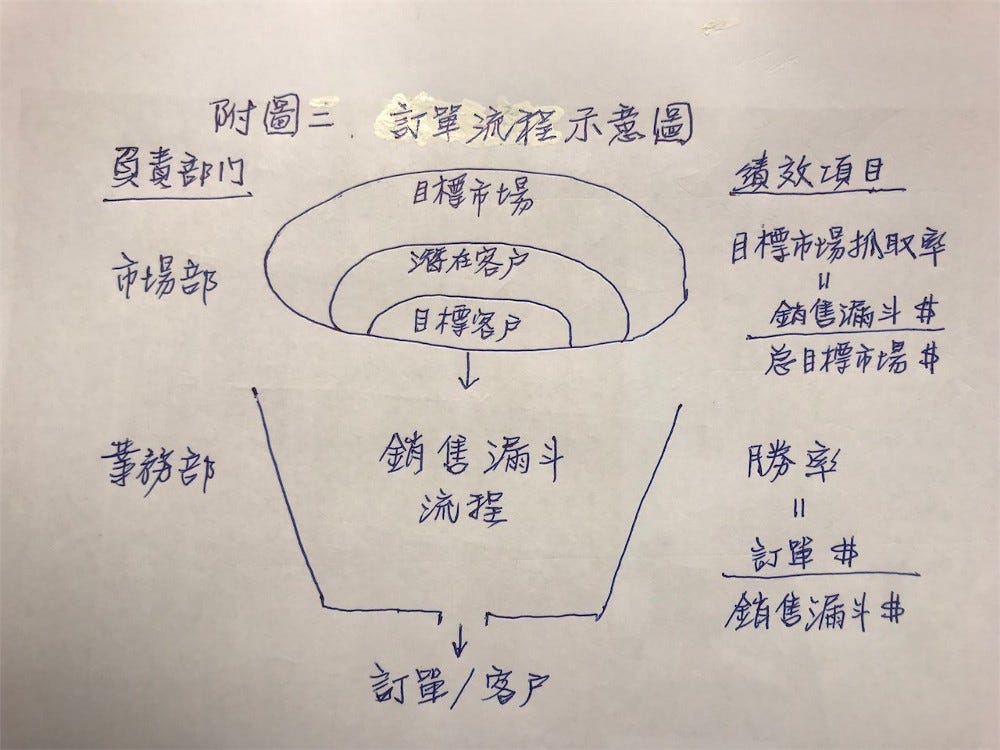 附圖三. 訂單流程示意圖
負責部门
績效項目
目標市場
潛在客户
目標客户
市場部
目標市場抓取率
=
銷售漏斗 $
总目標市場 $
業務部
銷售漏斗
流程
勝率
=
訂單 $
銷售漏斗 $
訂單/客户